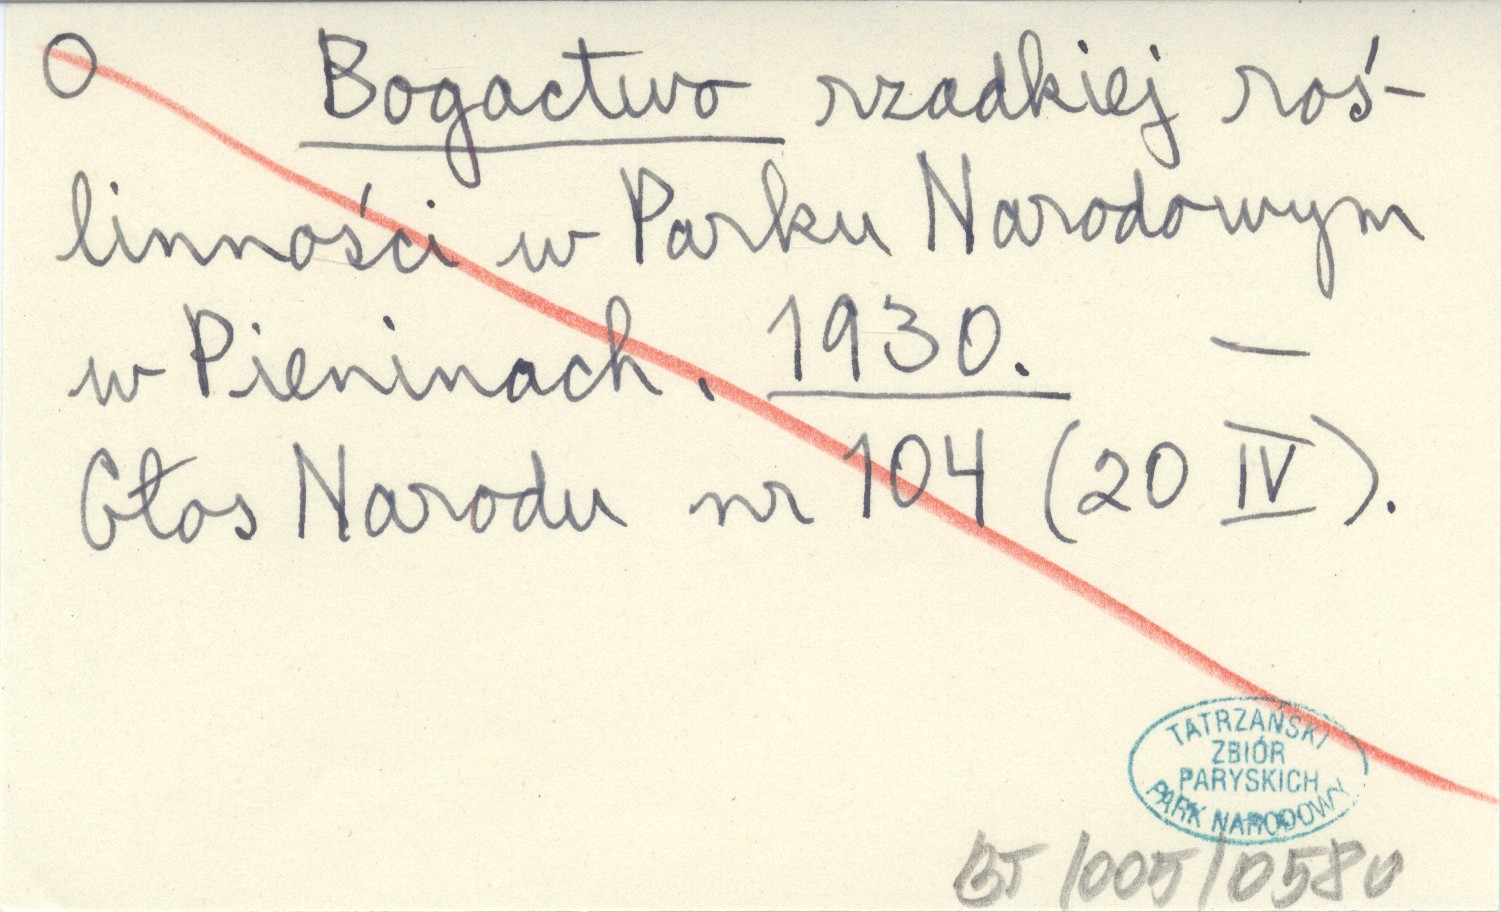 O Bogactwo rzadkiej roś-
linności w Parku Narodowym
w Pieninach. 1930. —
Głos Narodu nr 104 (20 IV).
TATRZAŃSKI
ZBIÓR
PARYSKICH
PARK NARODOWY
BT/005/0580